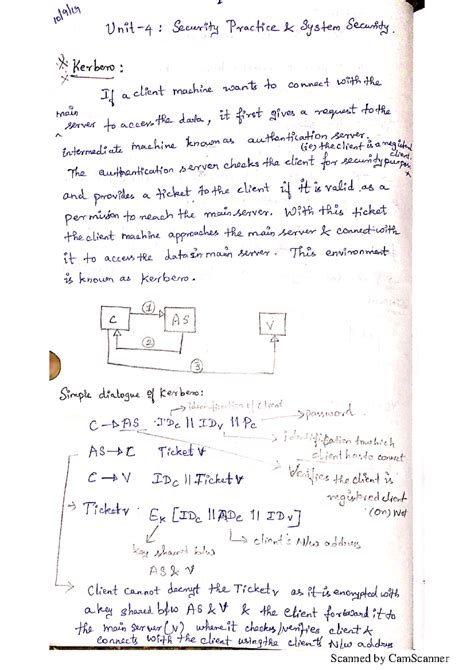 10/9/19
Unit-4 : Security Practice & System Security.
* Kerbero :
If a client machine wants to connect with the
main
server to access the data, it first gives a request to the
intermediate machine known as authentication server.
(ie) the client is a registered client.
The authentication server checks the client for security purpose
and provides a ticket to the client if it is valid as a
permission to reach the main server. With this ticket
the client machine approaches the main server & connect with
it to access the data in main server. This environment
is known as Kerbero.
C 1 AS V
2
3
Simple dialogue of Kerbero:
identification of client
C → AS IDc || IDv || Pc
password
identification to which
client has to connect
AS → C Ticket v
C → V IDc || Ticket v
Verifies the client is
registered client
(or) Not
Ticket v Ek [IDc || ADc || IDv]
key shared b/w
AS & V
client's N/w address
Client cannot decrypt the Ticket v as it is encrypted with
a key shared b/w AS & V & the client forward it to
the main server (V) where it checks/verifies client &
connects with the client using the client's N/w address
Scanned by CamScanner